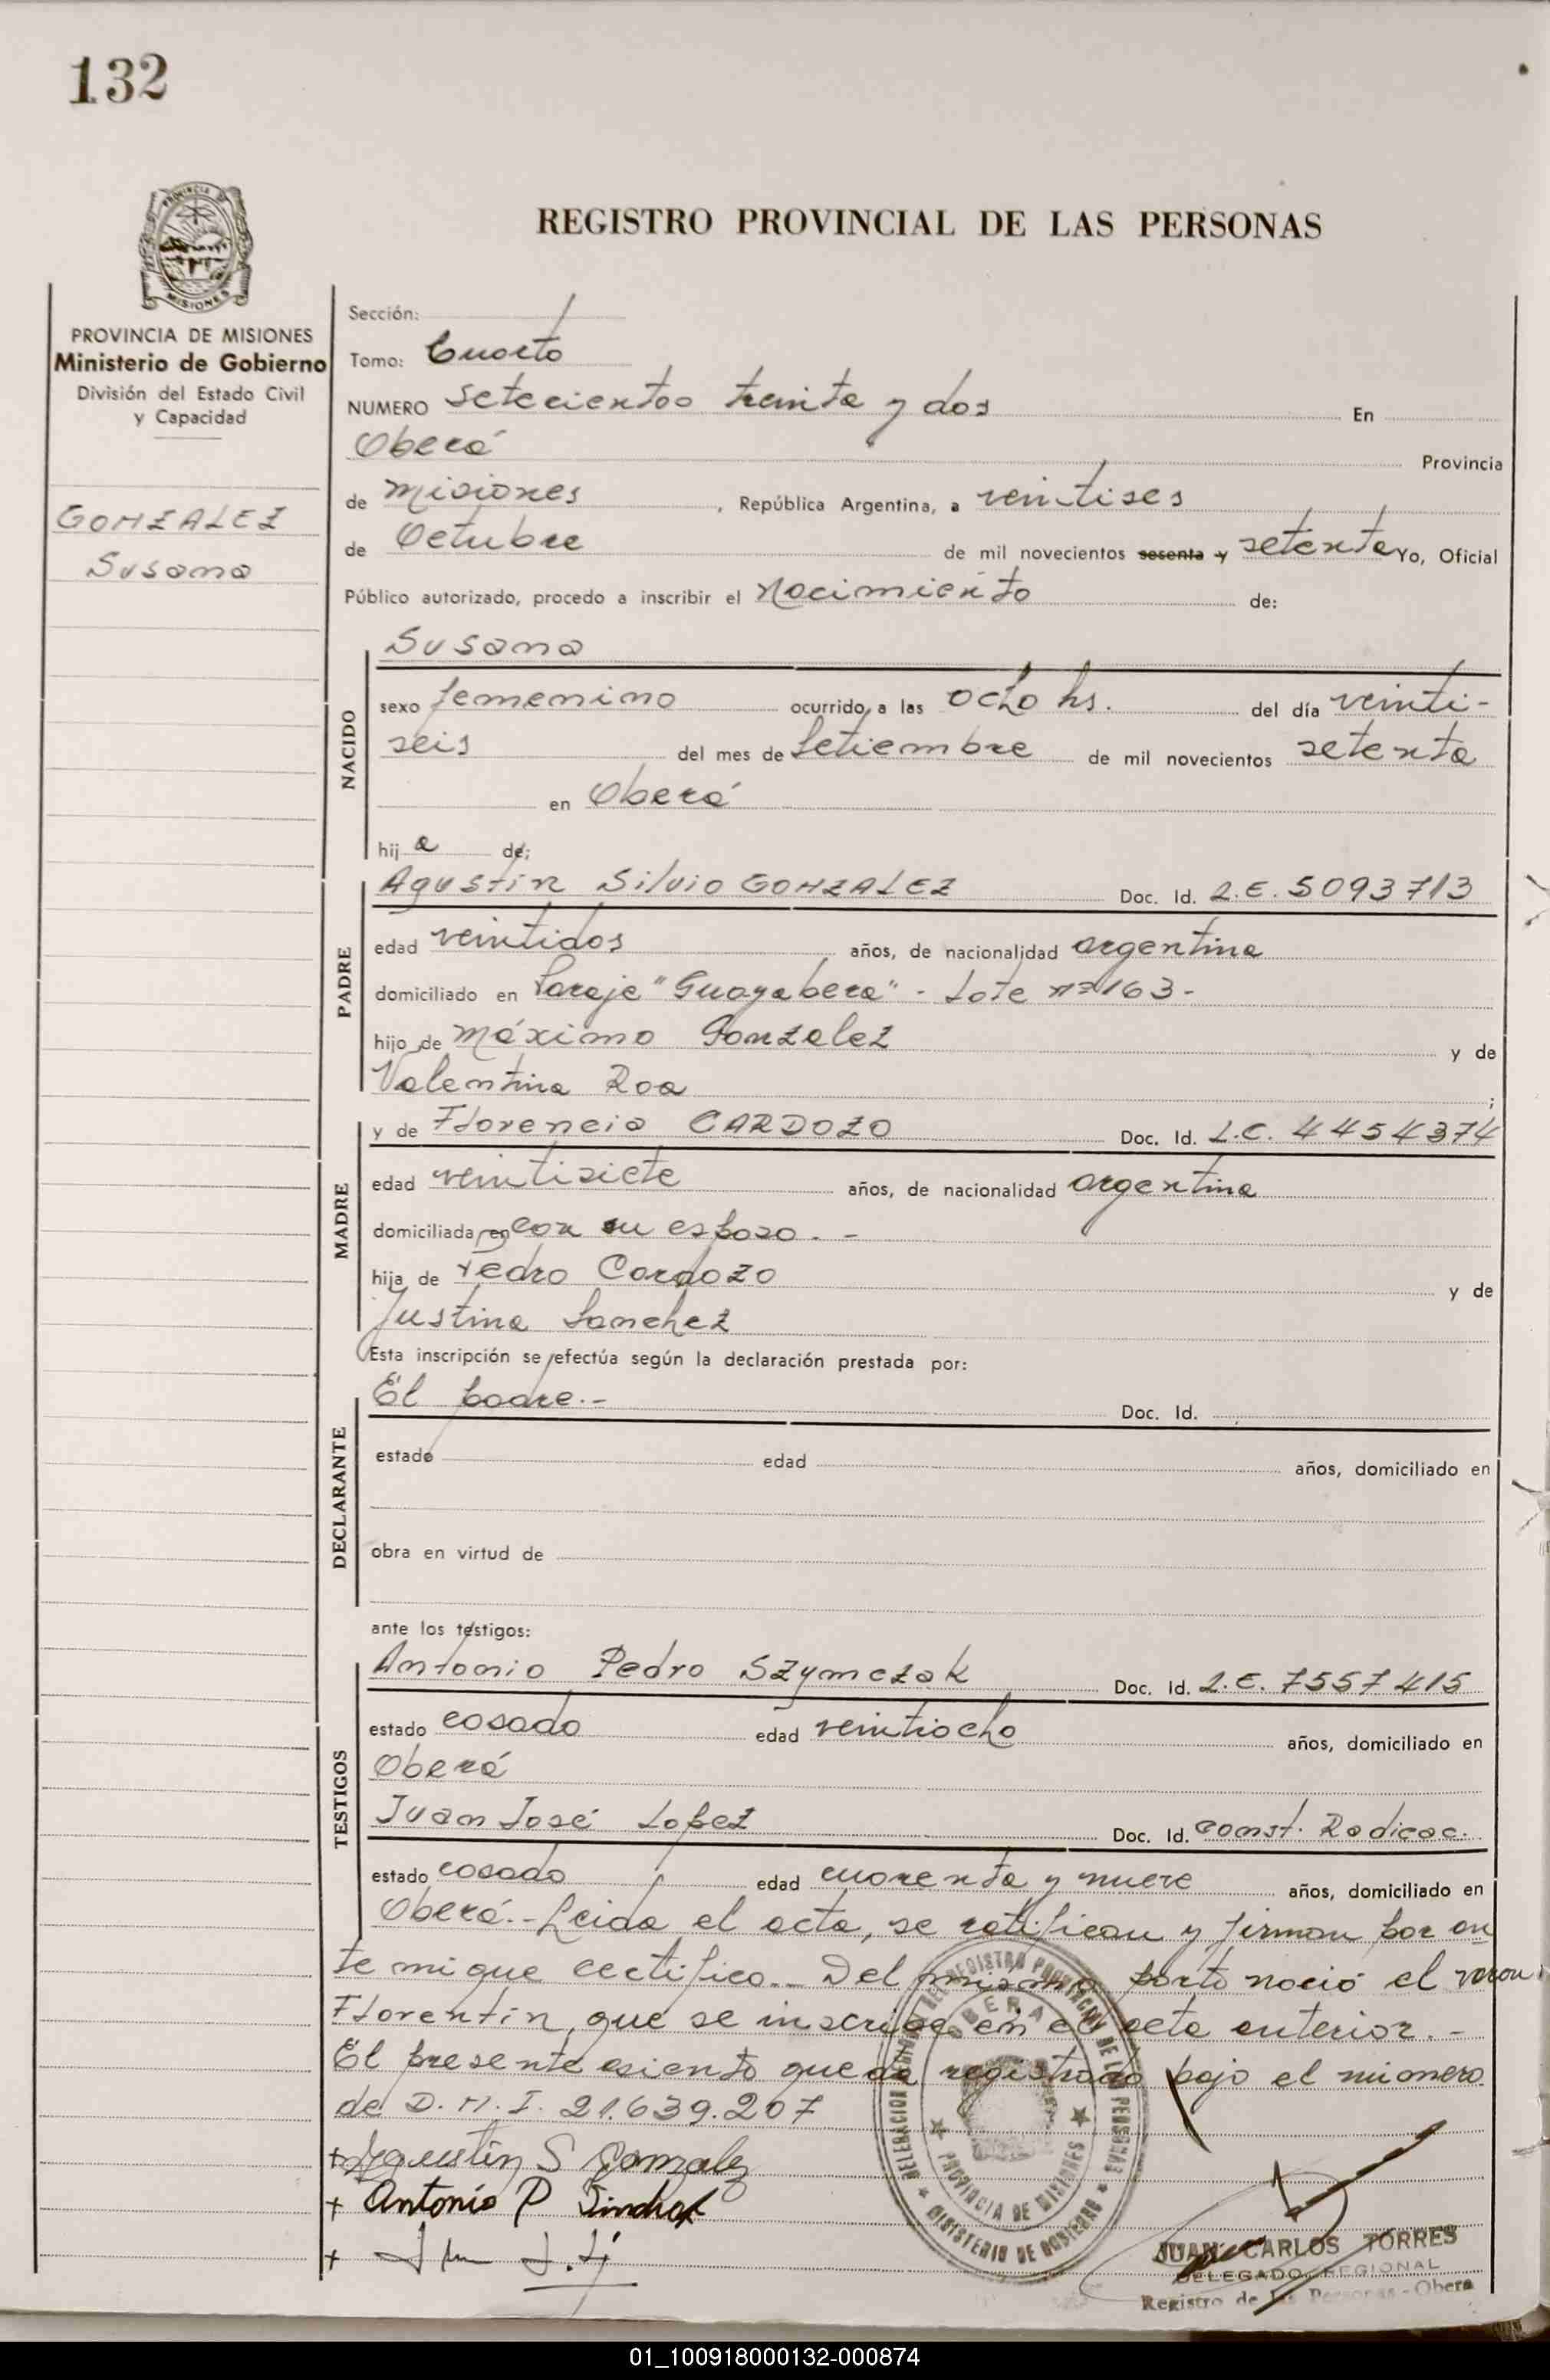 132
PROVINCIA DE MISIONES
Ministerio de Gobierno
División del Estado Civil
y Capacidad
GONZALEZ
Susana
REGISTRO PROVINCIAL DE LAS PERSONAS
Sección: /
Tomo: Cuarto
NUMERO setecientos treinta y dos En
Oberá Provincia
de Misiones, República Argentina, a veintises
de Octubre de mil novecientos sesenta y setenta Yo, Oficial
Público autorizado, procedo a inscribir el Nacimiento de:
NACIDO
Susana
sexo femenino ocurrido a las ocho hs. del día veinti-
seis del mes de Setiembre de mil novecientos setenta
en Oberá
hij a de;
PADRE
Agustin Silvio GONZALEZ Doc. Id. L.E. 5093713
edad veintidos años, de nacionalidad argentina
domiciliado en Paraje "Guayabera" - Lote nº 163-
hijo de Máximo Gonzalez y de
Valentina Roa ;
MADRE
y de Florencia CARDOZO Doc. Id. L.C. 4454374
edad veintisiete años, de nacionalidad argentina
domiciliada en con su esposo. -
hija de Pedro Cardozo y de
Justina Sanchez
Esta inscripción se efectúa según la declaración prestada por:
DECLARANTE
El padre.- Doc. Id.
estado edad años, domiciliado en
obra en virtud de
ante los testigos:
TESTIGOS
Antonio Pedro Szymczak Doc. Id. L.E. 7557415
estado casado edad veintiocho años, domiciliado en
Oberá
Juan José Lopez Doc. Id. Const. Radicac.
estado casado edad cuarenta y nueve años, domiciliado en
Oberá.- Leida el acta, se ratifican y firman por an
te mi que certifico.- Del mismo parto nació el varon
Florentín, que se inscribe en el acta anterior. -
El presente asiento queda registrado bajo el número
de D.N.I. 21.639.207
+ Agustin S Gonzalez
+ Antonio P
+
DELEGACION REGIONAL DEL REGISTRO PROVINCIAL DE LAS PERSONAS
OBERA
PROVINCIA DE MISIONES
MINISTERIO DE GOBIERNO
JUAN CARLOS TORRES
DELEGADO REGIONAL
Registro de las Personas - Oberá
01_100918000132-000874